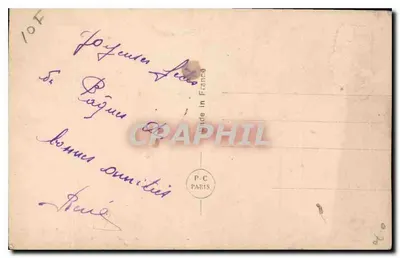 10F
Joyeuses fêtes
de Pâques et
bonnes amitiés
René
Made in France
P-C
PARIS
CARPHIL